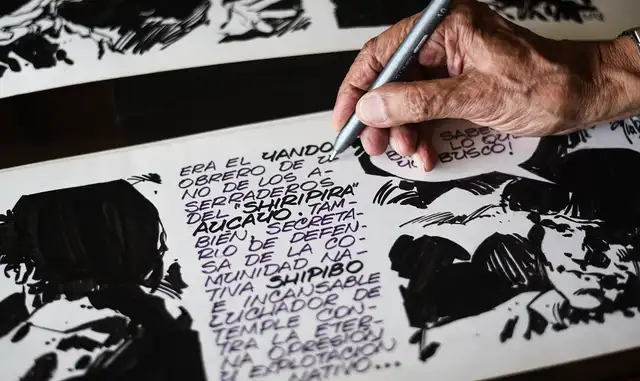 ERA EL YANDO
OBRERO DE U-
NO DE LOS A-
SERRADEROS
DEL "SHIRIPIRA"
AUCAYO. TAM-
BIÉN, SECRETA-
RIO DE DEFEN-
SA DE LA CO-
MUNIDAD NA-
TIVA SHIPIBO
E INCANSABLE
LUCHADOR DE
TEMPLE CON-
TRA LA ETER-
NA OPRESIÓN
Y EXPLOTACIÓN
NATIVO...
LO QUE
BUSCO!